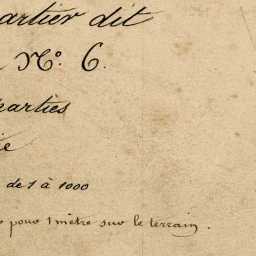 artier dit
N.º 6.
parties
ie
de 1 à 1000
pour 1 mètre sur le terrain.